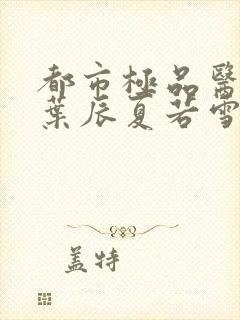 都市極品醫
葉辰夏若雪
蓋特